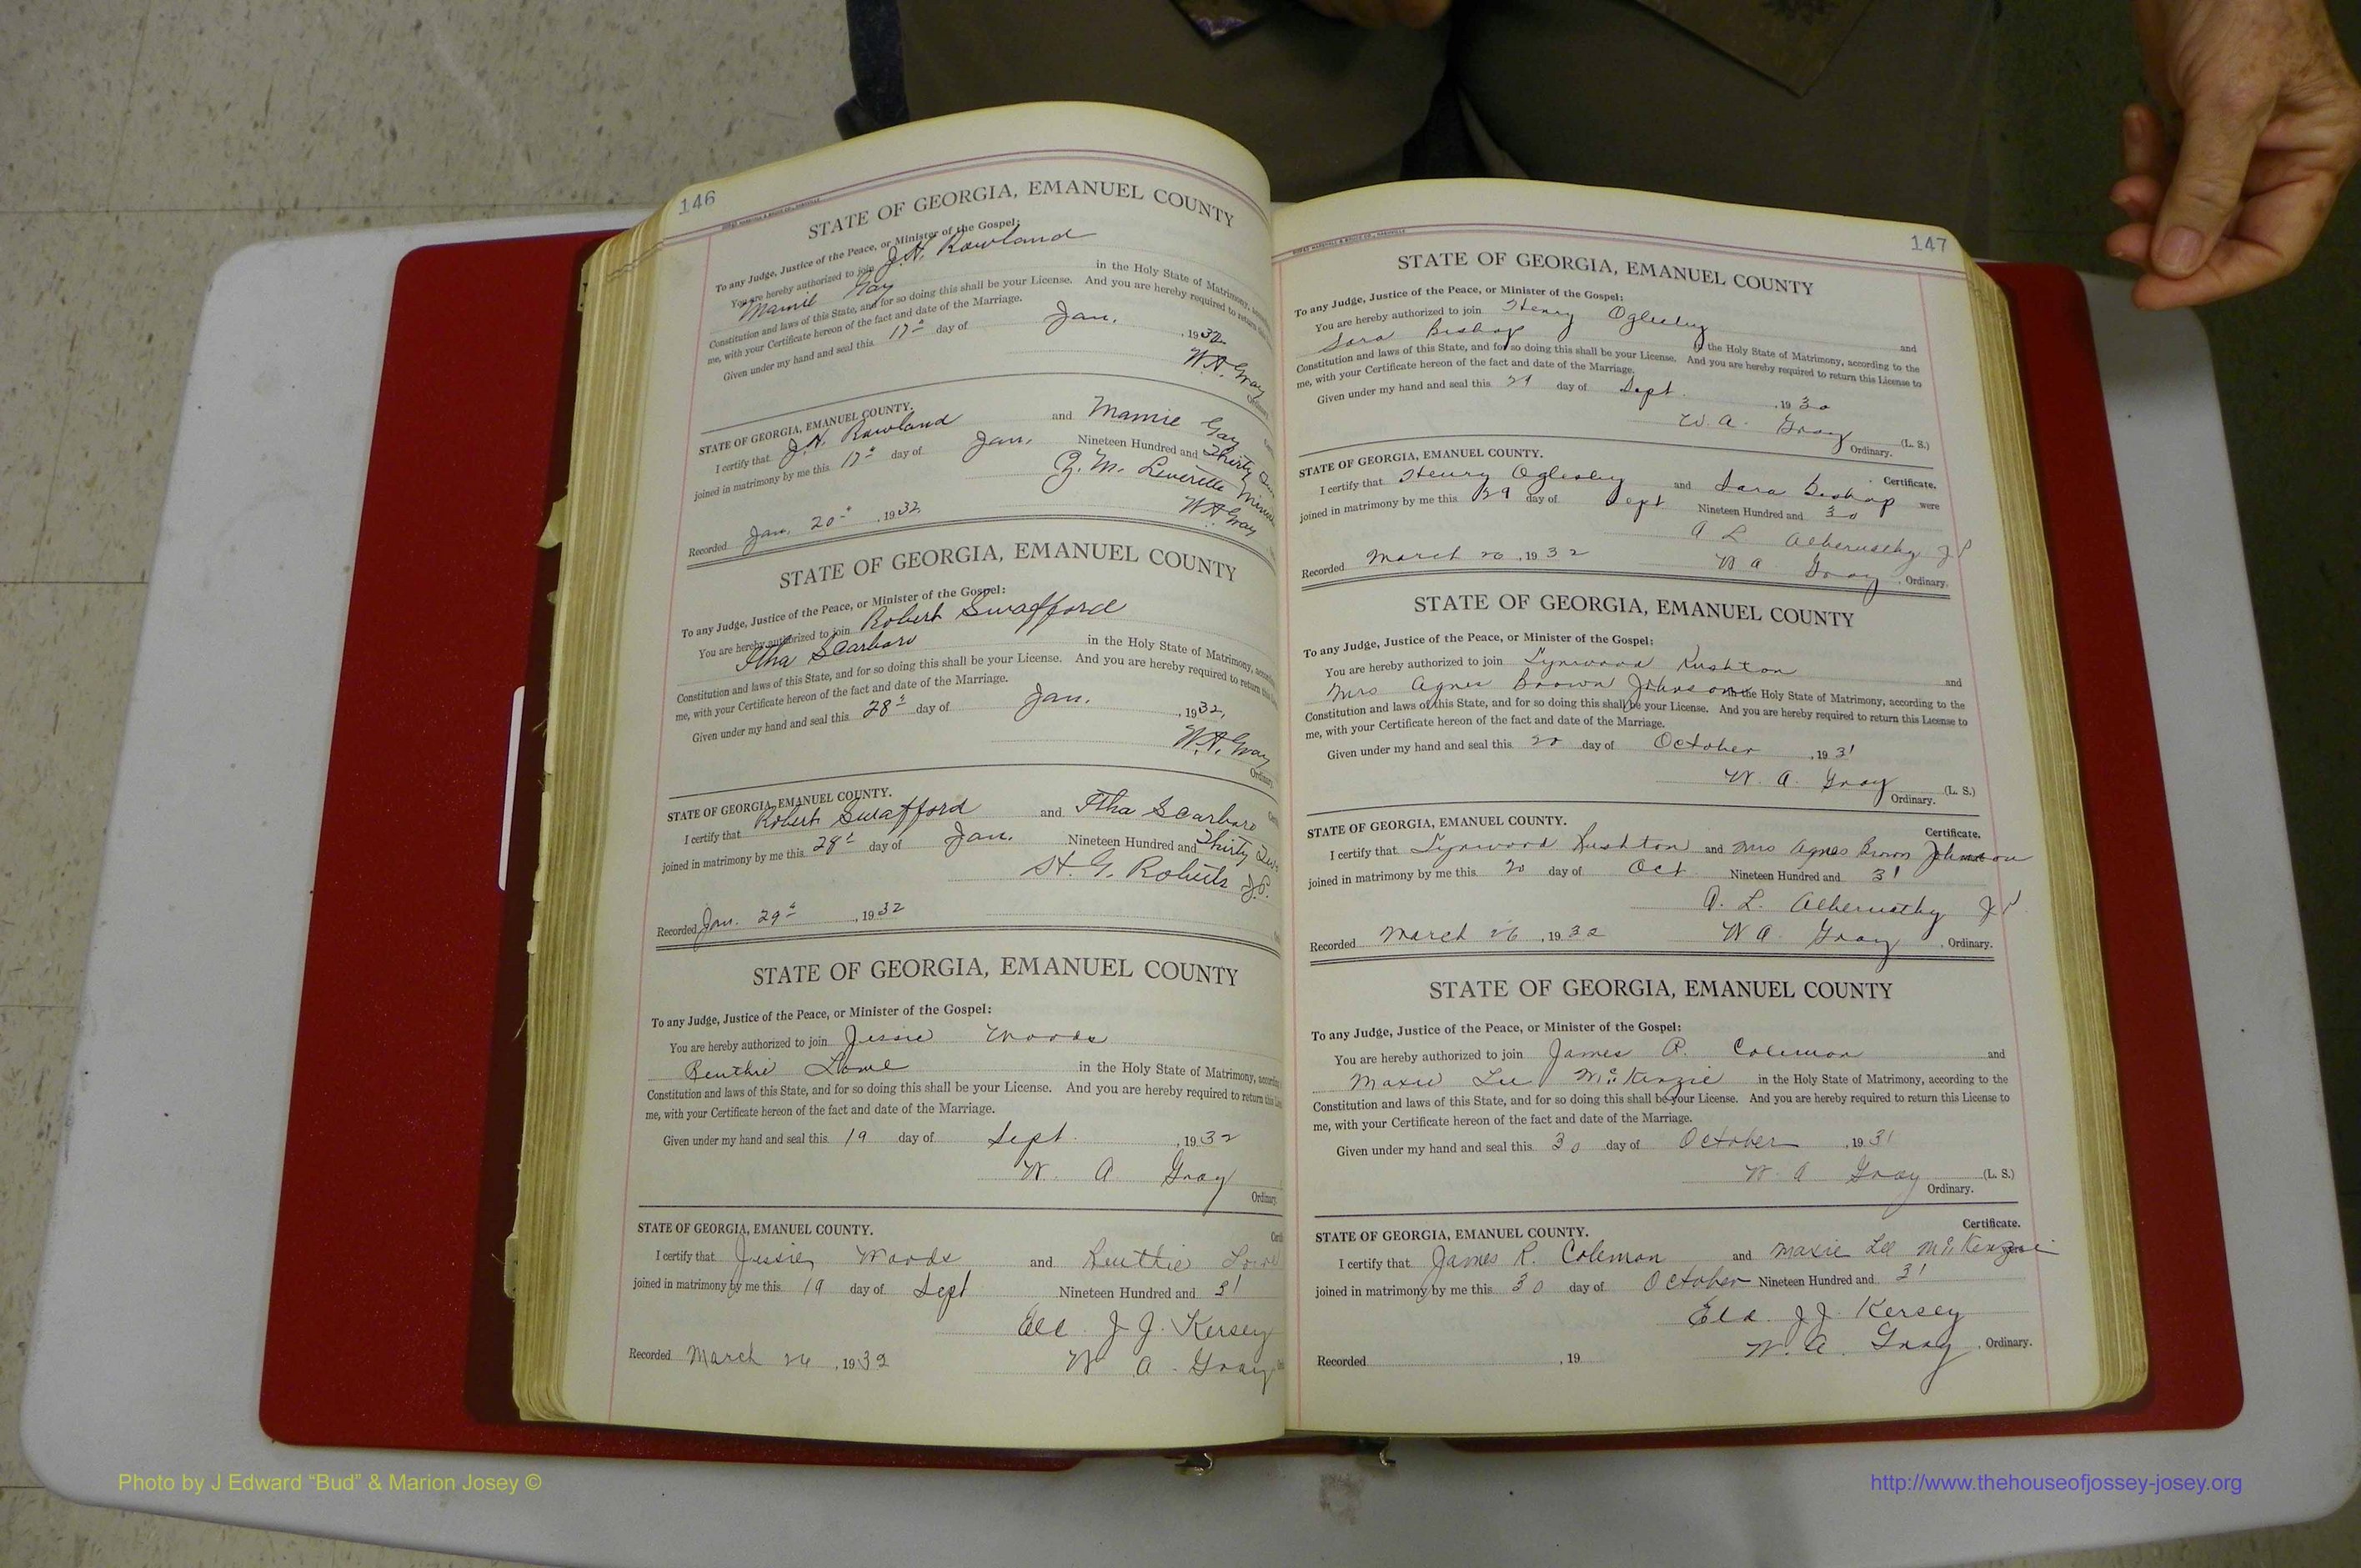 146
STATE OF GEORGIA, EMANUEL COUNTY
To any Judge, Justice of the Peace, or Minister of the Gospel:
You are hereby authorized to join J. H. Rowland
Mamie Gay in the Holy State of Matrimony,
Constitution and laws of this State, and for so doing this shall be your License. And you are hereby required to return
me, with your Certificate hereon of the fact and date of the Marriage.
Given under my hand and seal this 17" day of Jan. , 1932.
W. A. Gray
Ordinary
STATE OF GEORGIA, EMANUEL COUNTY.
I certify that J. H. Rowland and Mamie Gay
joined in matrimony by me this 17" day of Jan. Nineteen Hundred and Thirty
M. Leverette
Recorded Jan. 20" , 1932. W. A. Gray
STATE OF GEORGIA, EMANUEL COUNTY
To any Judge, Justice of the Peace, or Minister of the Gospel:
You are hereby authorized to join Robert Swafford
Scarboro in the Holy State of Matrimony,
Constitution and laws of this State, and for so doing this shall be your License. And you are hereby required to return this
me, with your Certificate hereon of the fact and date of the Marriage.
Given under my hand and seal this 28" day of Jan. , 1932.
W. A. Gray
Ordinary
STATE OF GEORGIA, EMANUEL COUNTY.
I certify that Robert Swafford and Scarboro
joined in matrimony by me this 28" day of Jan. Nineteen Hundred and Thirty Two
H. G. Roberts J.P.
Recorded Jan. 29" , 1932
STATE OF GEORGIA, EMANUEL COUNTY
To any Judge, Justice of the Peace, or Minister of the Gospel:
You are hereby authorized to join Jessie Woods
Lowe in the Holy State of Matrimony,
Constitution and laws of this State, and for so doing this shall be your License. And you are hereby required to return this
me, with your Certificate hereon of the fact and date of the Marriage.
Given under my hand and seal this 19 day of Sept. , 1932
W. A. Gray
Ordinary
STATE OF GEORGIA, EMANUEL COUNTY.
I certify that Jessie Woods and Lowe
joined in matrimony by me this 19 day of Sept Nineteen Hundred and 31
Eld. J J. Kersey
Recorded March 26 , 1932 W A. Gray
147
STATE OF GEORGIA, EMANUEL COUNTY
To any Judge, Justice of the Peace, or Minister of the Gospel:
You are hereby authorized to join Henry Oglesby and
Sara Bishop in the Holy State of Matrimony, according to the
Constitution and laws of this State, and for so doing this shall be your License. And you are hereby required to return this License to
me, with your Certificate hereon of the fact and date of the Marriage.
Given under my hand and seal this 29 day of Sept. , 1930
W. A. Gray (L. S.)
Ordinary.
STATE OF GEORGIA, EMANUEL COUNTY. Certificate.
I certify that Henry Oglesby and Sara Bishop were
joined in matrimony by me this 29 day of Sept Nineteen Hundred and 30
A L Abernathy J P
Recorded March 26 , 1932 W A Gray , Ordinary.
STATE OF GEORGIA, EMANUEL COUNTY
To any Judge, Justice of the Peace, or Minister of the Gospel:
You are hereby authorized to join Lynwood Rushton and
Mrs Agnes Brown Johnson in the Holy State of Matrimony, according to the
Constitution and laws of this State, and for so doing this shall be your License. And you are hereby required to return this License to
me, with your Certificate hereon of the fact and date of the Marriage.
Given under my hand and seal this 20 day of October , 1931
W. A. Gray (L. S.)
Ordinary.
STATE OF GEORGIA, EMANUEL COUNTY. Certificate.
I certify that Lynwood Rushton and Mrs Agnes Brown Johnson
joined in matrimony by me this 20 day of Oct. Nineteen Hundred and 31
A. L. Abernathy J P
Recorded March 26 , 1932 W A. Gray , Ordinary.
STATE OF GEORGIA, EMANUEL COUNTY
To any Judge, Justice of the Peace, or Minister of the Gospel:
You are hereby authorized to join James R. Coleman and
Maxie Lee McKenzie in the Holy State of Matrimony, according to the
Constitution and laws of this State, and for so doing this shall be your License. And you are hereby required to return this License to
me, with your Certificate hereon of the fact and date of the Marriage.
Given under my hand and seal this 30 day of October , 1931
W A Gray (L. S.)
Ordinary.
STATE OF GEORGIA, EMANUEL COUNTY. Certificate.
I certify that James R. Coleman and Maxie Lee McKenzie
joined in matrimony by me this 30 day of October Nineteen Hundred and 31
Eld. J J. Kersey
Recorded , 19 W. A. Gray , Ordinary.
Photo by J Edward “Bud” & Marion Josey ©
http://www.thehouseofjossey-josey.org